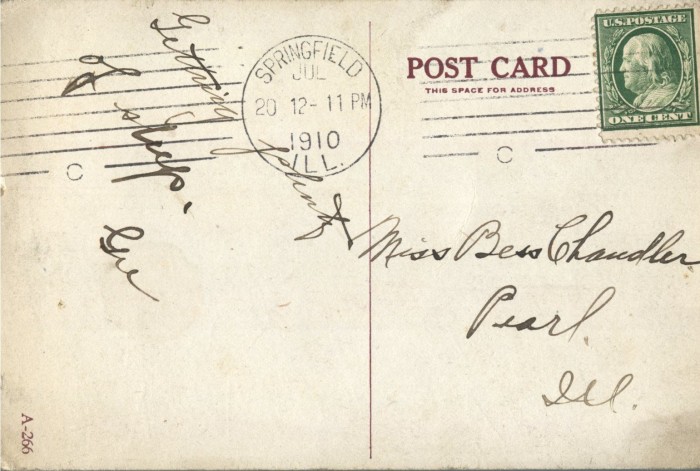 Getting plenty
of sleep.
Eve
SPRINGFIELD
JUL
20 12-11 PM
1910
ILL.
C
POST CARD
THIS SPACE FOR ADDRESS
C
U.S. POSTAGE
ONE CENT
Miss Bess Chandler
Pearl,
Ill.
A-266